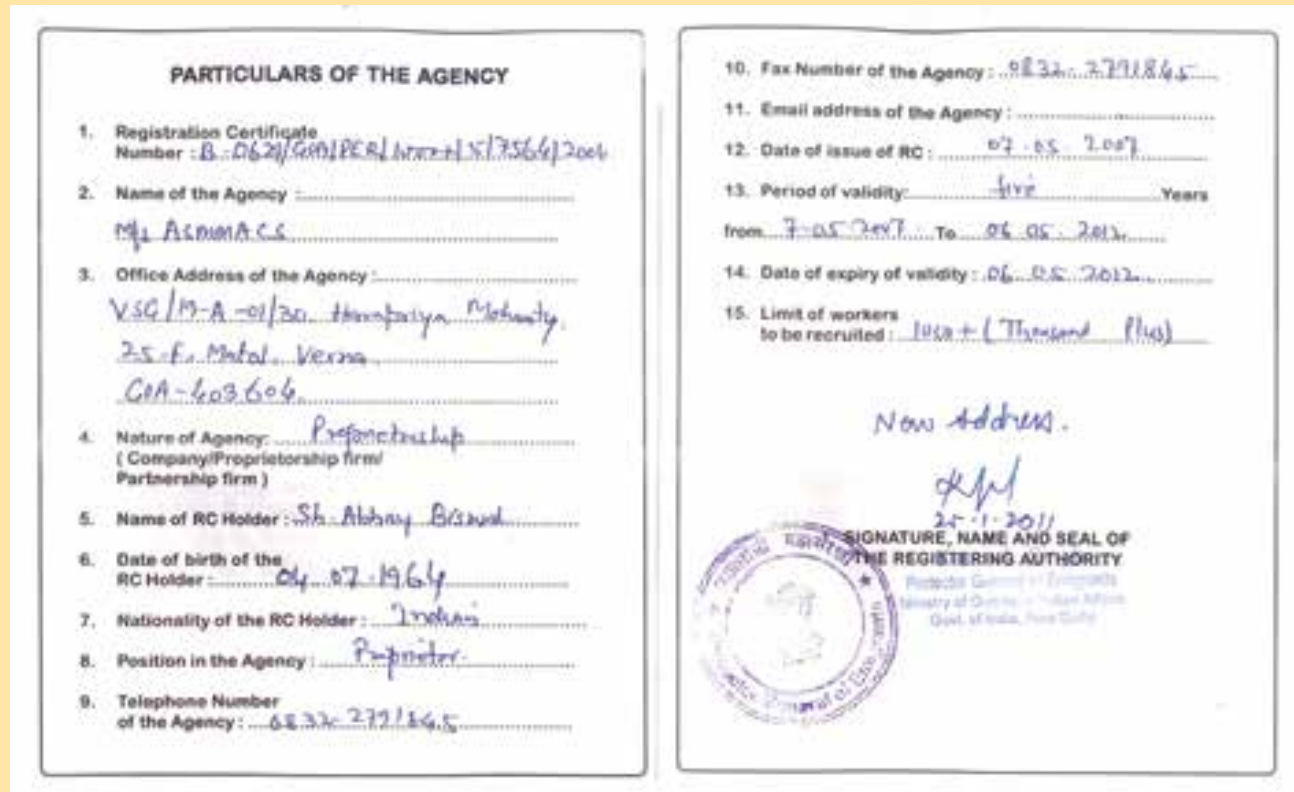 PARTICULARS OF THE AGENCY
1. Registration Certificate
Number : B-0621/GOA/PER/ /5/7564/2006
2. Name of the Agency :
M/s ASMMACS
3. Office Address of the Agency :
VSG/M-A-01/30, Mohanty,
25-F, Matol, Verna
GOA-403604
4. Nature of Agency: Proprietorship
( Company/Proprietorship firm/
Partnership firm )
5. Name of RC Holder : Sh. Abhay
6. Date of birth of the
RC Holder : 04 07-1964
7. Nationality of the RC Holder : Indian
8. Position in the Agency : Proprietor
9. Telephone Number
of the Agency : 0832-2791845
10. Fax Number of the Agency : 0832-2791845
11. Email address of the Agency :
12. Date of issue of RC : 07-05-2007
13. Period of validity: five Years
from 7-05 2007 To 06 05 2012
14. Date of expiry of validity : 06 05 2012
15. Limit of workers
to be recruited : 1000+ (Thousand Plus)
New Address.
25-1-2011
SIGNATURE, NAME AND SEAL OF
THE REGISTERING AUTHORITY
Protector General of Emigrants
Ministry of Overseas Indian Affairs
Govt. of India, New Delhi